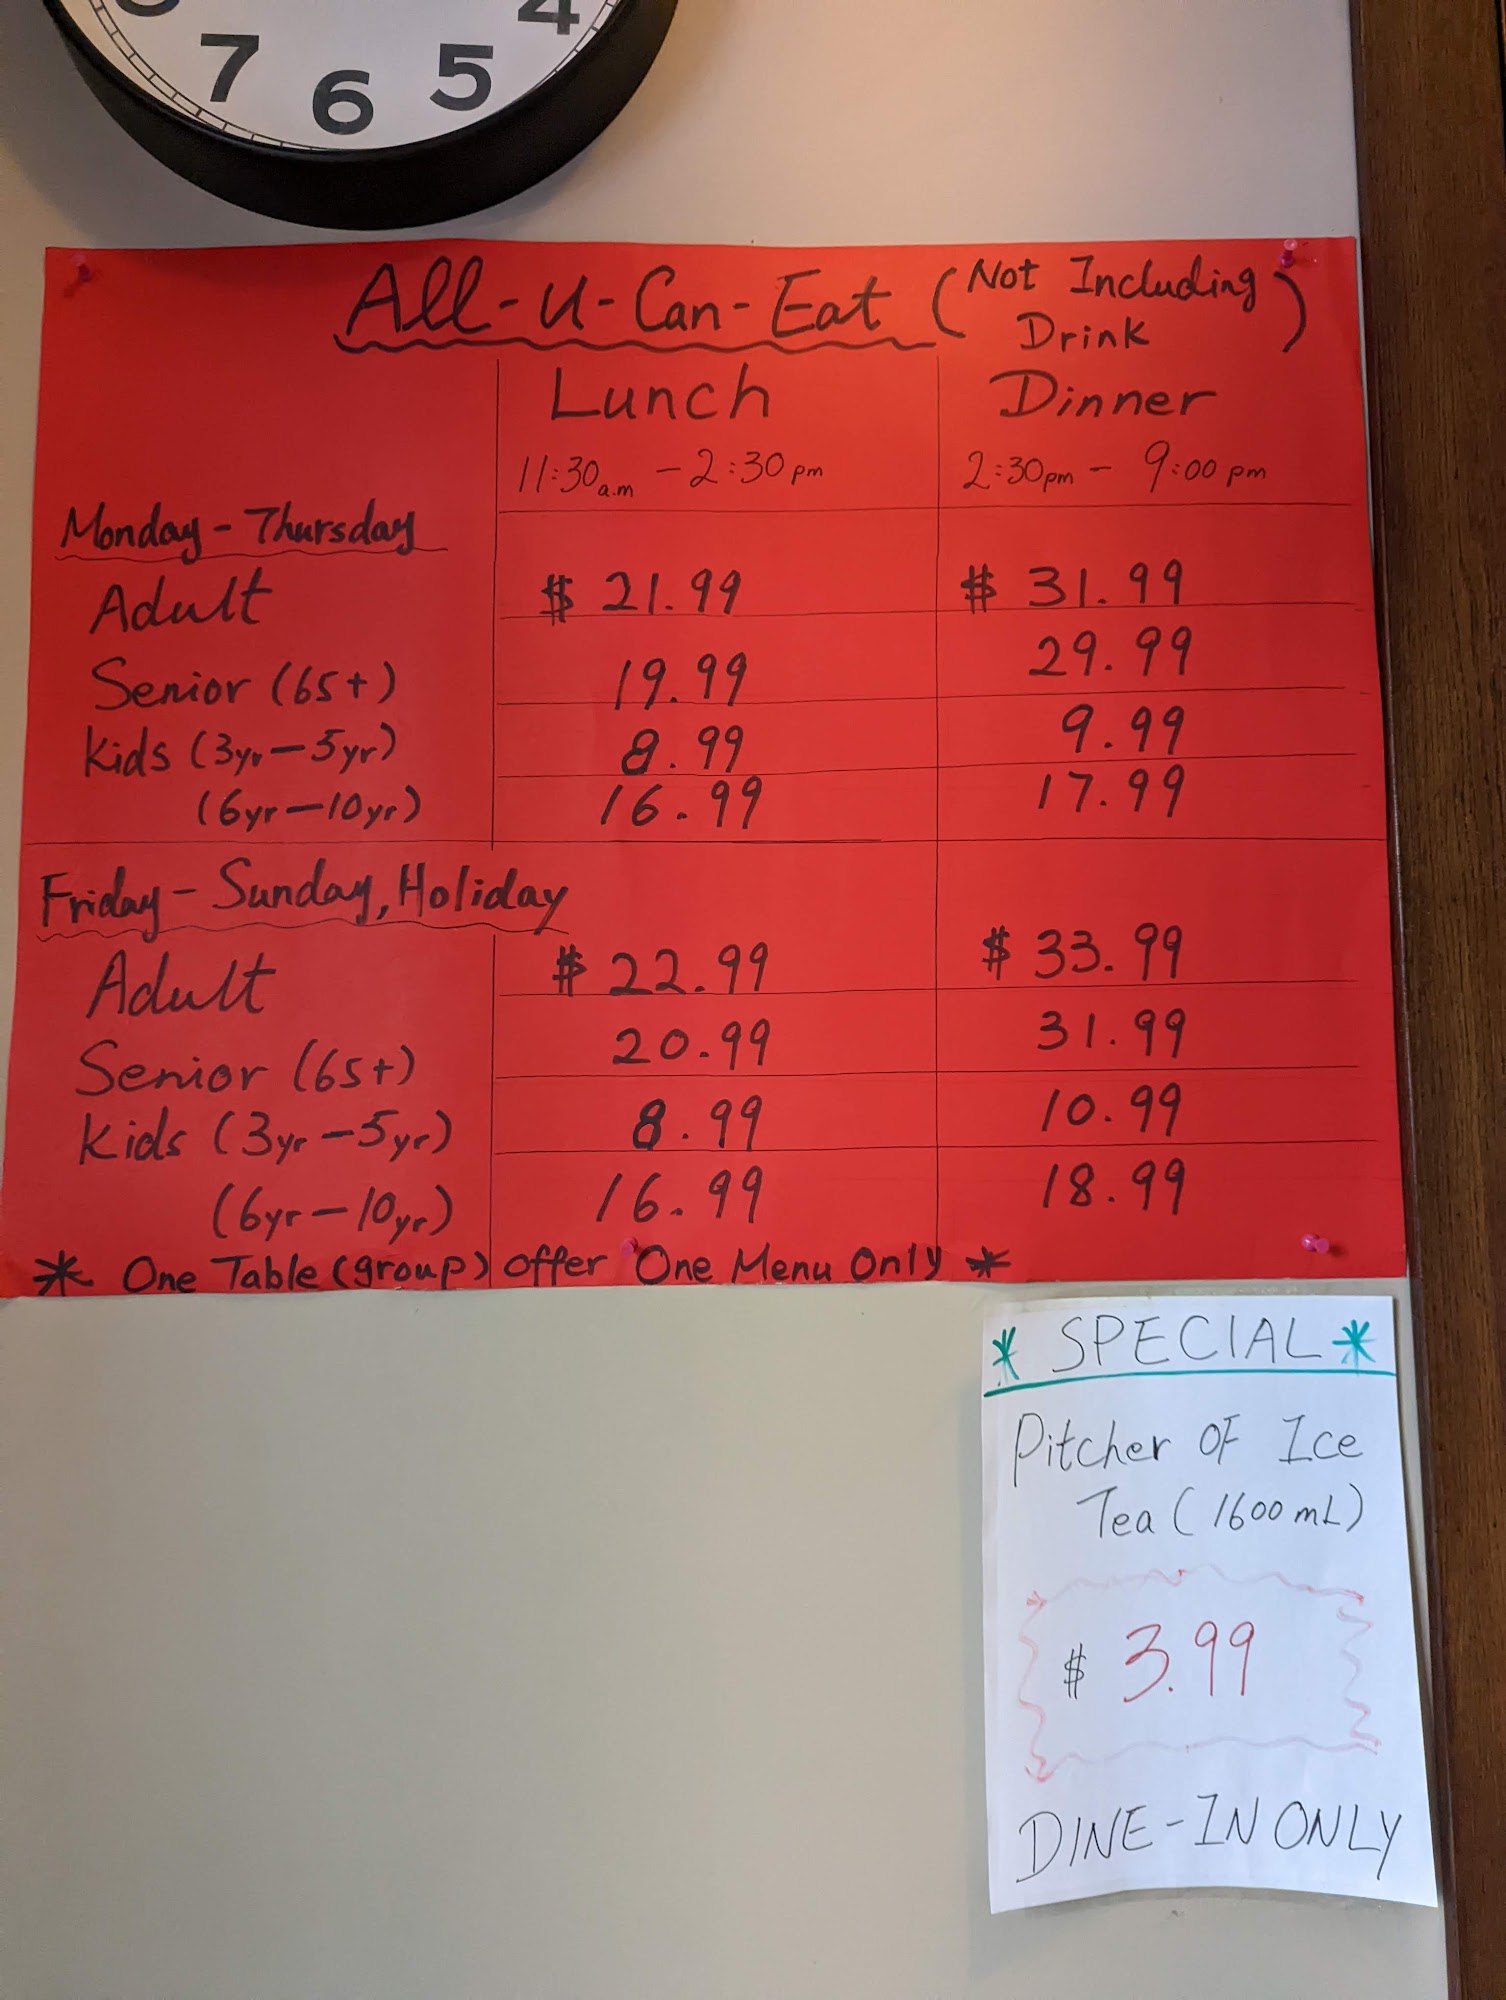 7 6 5 4
All-U-Can-Eat (Not Including Drink)
Lunch Dinner
11:30a.m - 2:30pm 2:30pm - 9:00pm
Monday - Thursday
Adult $ 21.99 $ 31.99
Senior (65+) 19.99 29.99
Kids (3yr-5yr) 8.99 9.99
(6yr-10yr) 16.99 17.99
Friday - Sunday, Holiday
Adult $ 22.99 $ 33.99
Senior (65+) 20.99 31.99
Kids (3yr-5yr) 8.99 10.99
(6yr-10yr) 16.99 18.99
* One Table (group) offer One Menu Only *
* SPECIAL *
Pitcher OF Ice
Tea (1600mL)
$ 3.99
DINE-IN ONLY